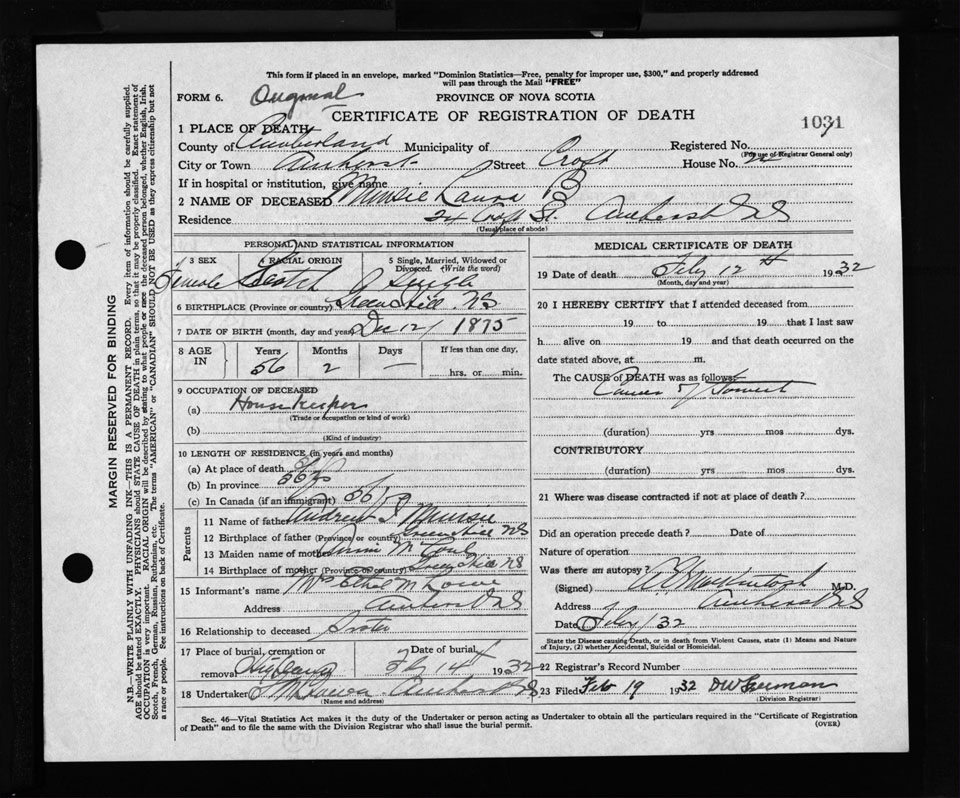 This form if placed in an envelope, marked "Dominion Statistics—Free, penalty for improper use, $300," and properly addressed
will pass through the Mail "FREE"
FORM 6. Original PROVINCE OF NOVA SCOTIA
CERTIFICATE OF REGISTRATION OF DEATH
1031
1 PLACE OF DEATH
County of Cumberland Municipality of Registered No.
(For use of Registrar General only)
City or Town Amherst Street Croft House No.
If in hospital or institution, give name
2 NAME OF DECEASED Munsie Laura B
Residence 24 Croft St. Amherst NS
(Usual place of abode)
PERSONAL AND STATISTICAL INFORMATION
3 SEX 4 RACIAL ORIGIN 5 Single, Married, Widowed or Divorced. (Write the word)
Female Scotch Single
6 BIRTHPLACE (Province or country) Green Hill NS
7 DATE OF BIRTH (month, day and year) Dec 12 / 1875
8 AGE IN Years Months Days If less than one day,
56 2 — hrs. or min.
9 OCCUPATION OF DECEASED
(a) House Keeper
(Trade or occupation or kind of work)
(b)
(Kind of industry)
10 LENGTH OF RESIDENCE (in years and months)
(a) At place of death
(b) In province 56
(c) In Canada (if an immigrant) 56
Parents
11 Name of father Andrew Munsie
12 Birthplace of father (Province or country) Green Hill NS
13 Maiden name of mother
14 Birthplace of mother (Province or country) Green Hill NS
15 Informant's name Mrs Ethel M Lowe
Address Amherst NS
16 Relationship to deceased Sister
17 Place of burial, cremation or removal Date of burial
Feb 14th 1932
18 Undertaker Amherst NS
(Name and address)
MEDICAL CERTIFICATE OF DEATH
19 Date of death Feby 12th 1932
(Month, day and year)
20 I HEREBY CERTIFY that I attended deceased from
19 to 19 that I last saw
h alive on 19 and that death occurred on the
date stated above, at m.
The CAUSE of DEATH was as follows:
Cancer of
(duration) yrs mos dys.
CONTRIBUTORY
(duration) yrs mos dys.
21 Where was disease contracted if not at place of death?
Did an operation precede death? Date of
Nature of operation
Was there an autopsy?
(Signed) MacKintosh M.D.
Address Amherst NS
Date Feby / 32
State the Disease causing Death, or in death from Violent Causes, state (1) Means and Nature
of Injury, (2) whether Accidental, Suicidal or Homicidal.
22 Registrar's Record Number
23 Filed Feb 19 1932
(Division Registrar)
Sec. 46—Vital Statistics Act makes it the duty of the Undertaker or person acting as Undertaker to obtain all the particulars required in the "Certificate of Registration
of Death" and to file the same with the Division Registrar who shall issue the burial permit. (OVER)
MARGIN RESERVED FOR BINDING
N.B.—WRITE PLAINLY WITH UNFADING INK—THIS IS A PERMANENT RECORD. Every item of information should be carefully supplied.
AGE should be stated EXACTLY. PHYSICIANS should STATE CAUSE OF DEATH in plain terms, so that it may be properly classified. Exact statement of
OCCUPATION is very important. RACIAL ORIGIN will be described by stating to what people or race the deceased person belonged, whether English, Irish,
Scotch, French, German, Russian, Ruthenian, etc. The terms "AMERICAN" or "CANADIAN" SHOULD NOT BE USED as they express citizenship but not
a race or people. See instructions on back of Certificate.